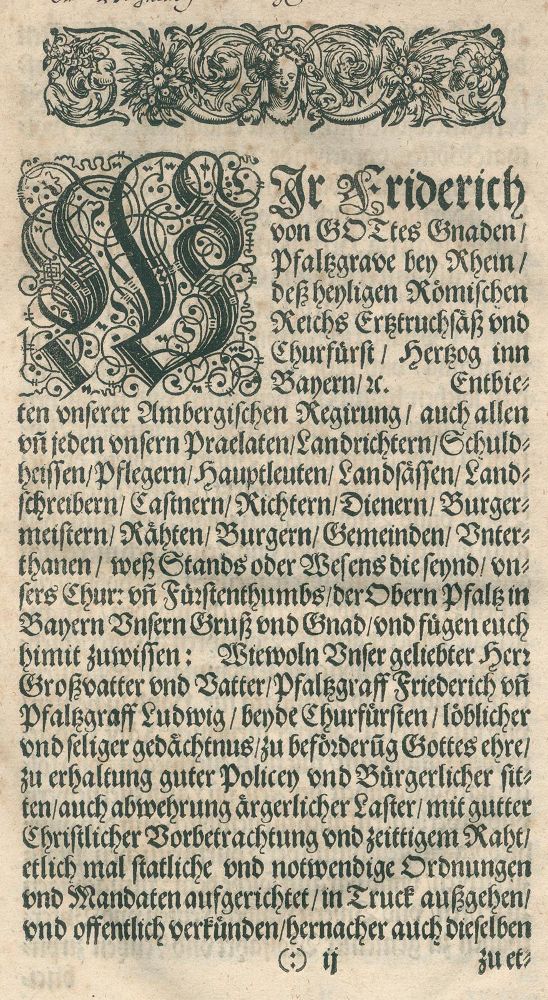 WJr Friderich
von GOTtes Gnaden /
Pfaltzgrave bey Rhein /
deß heyligen Römischen
Reichs Ertztruchsäß vnd
Churfürst / Hertzog inn
Bayern / ꝛc. Entbie⸗
ten vnserer Ambergischen Regirung / auch allen
vñ jeden vnsern Praelaten / Landrichtern / Schuld⸗
heissen / Pflegern / Hauptleuten / Landsässen / Land⸗
schreibern / Castnern / Richtern / Dienern / Burger⸗
meistern / Rähten / Burgern / Gemeinden / Vnter⸗
thanen / weß Stands oder Wesens die seynd / vn⸗
sers Chur: vñ Fürstenthumbs / der Obern Pfaltz in
Bayern Vnsern Gruß vnd Gnad / vnd fügen euch
himit zuwissen : Wiewoln Vnser geliebter Herr
Großvatter vnd Vatter / Pfaltzgraff Friederich vñ
Pfaltzgraff Ludwig / beyde Churfürsten / löblicher
vnd seliger gedächtnus / zu beförderũg Gottes ehre /
zu erhaltung guter Policey vnd Bürgerlicher sit⸗
ten / auch abwehrung ärgerlicher Laster / mit gutter
Christlicher Vorbetrachtung vnd zeittigem Raht /
etlich mal statliche vnd notwendige Ordnungen
vnd Mandaten aufgerichtet / in Truck außgehen /
vnd offentlich verkünden / hernacher auch dieselben
(:) ij zu et⸗